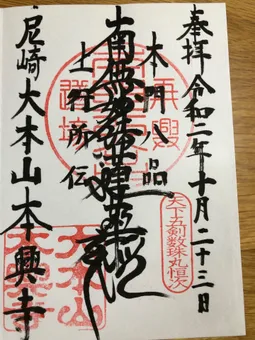 奉拝 令和二年十月二十三日
本門八品
南無妙法蓮華経
上行所伝
尼崎 大本山本興寺
天下五剣数珠丸恒次
大本山
本興寺